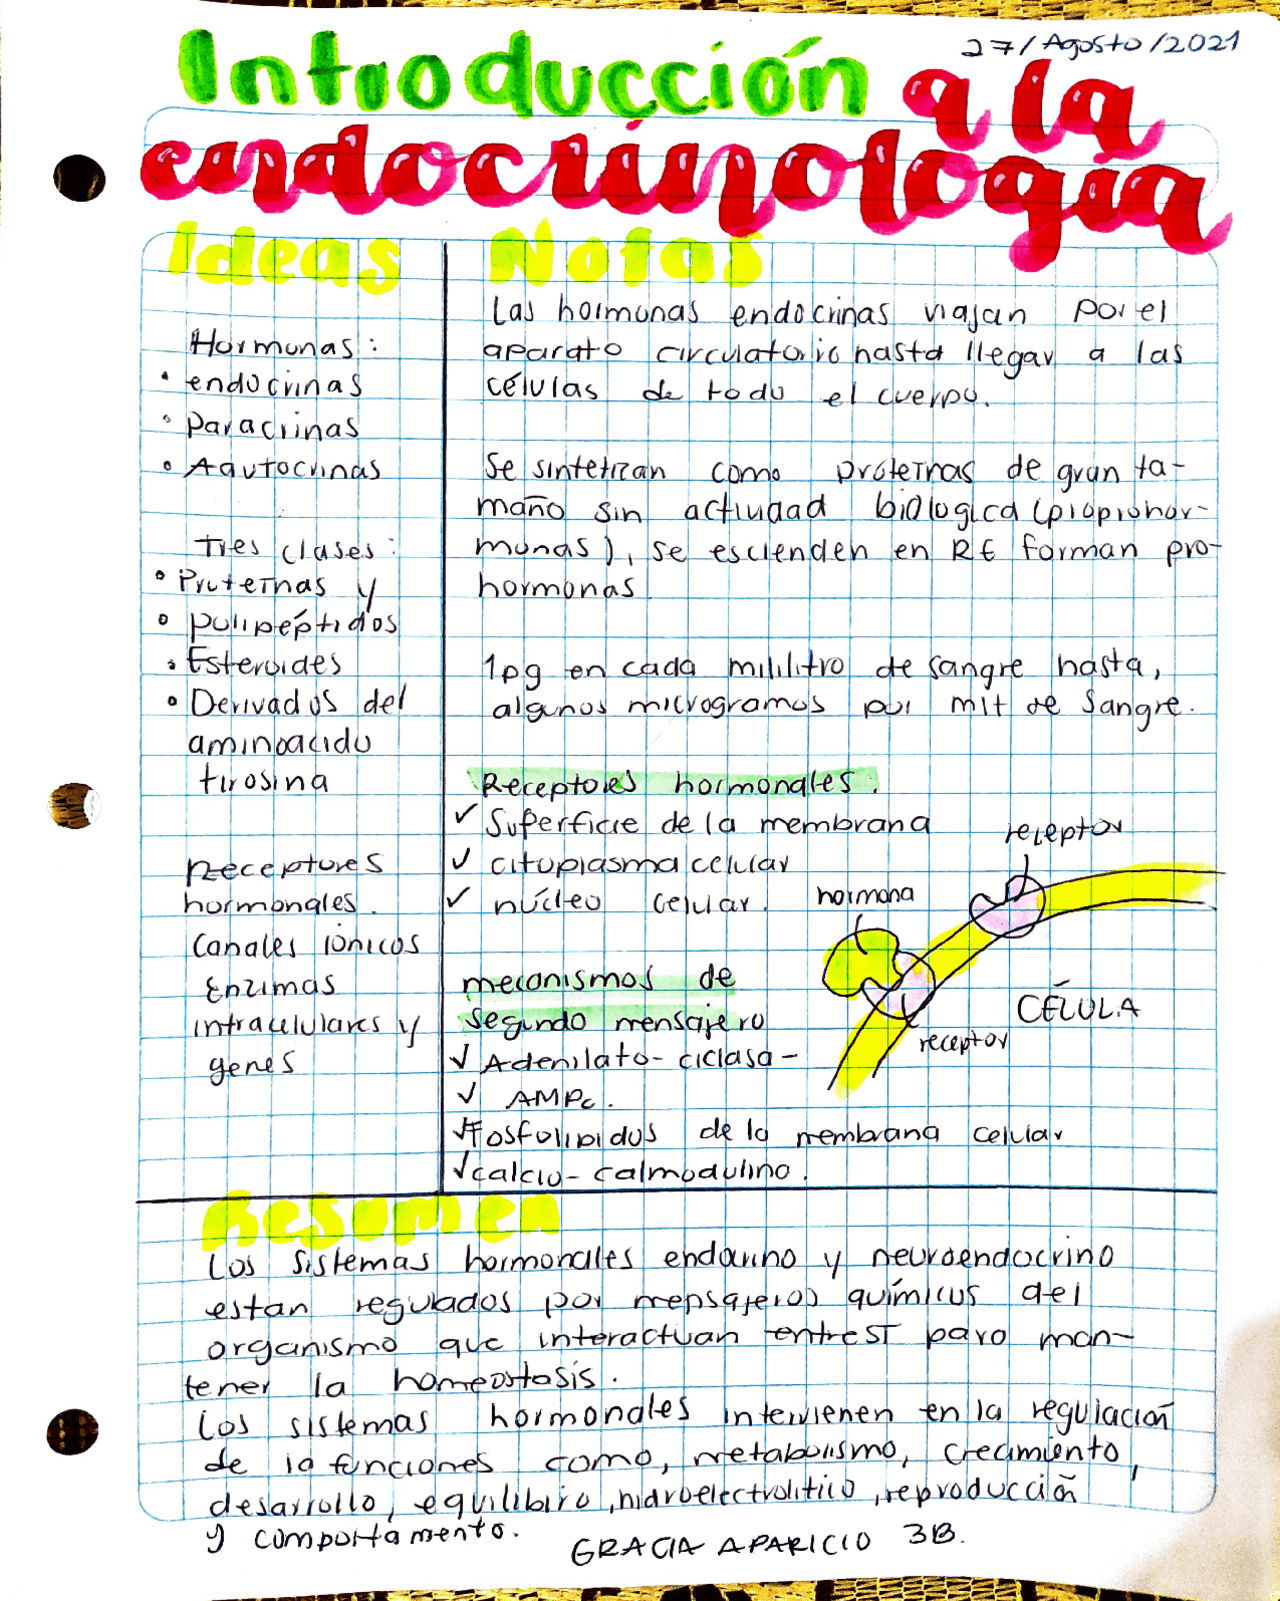 27/Agosto/2021
Introducción a la
endocrinología
Ideas
Hormonas:
• endocrinas
• Paracrinas
• Aautocrinas
Tres clases:
• Proteínas y
• polipéptidos
• Esteroides
• Derivados del
aminoacido
tirosina
Receptores
hormonales.
Canales iónicos
Enzimas
intracelulares y
genes
Notas
Las hormonas endocrinas viajan por el
aparato circulatorio hasta llegar a las
células de todo el cuerpo.
Se sintetizan como proteínas de gran ta-
maño sin actividad biologica (propiohor-
monas), se escienden en RE forman pro-
hormonas
1pg en cada mililitro de sangre hasta,
algunos microgramos por mit de sangre.
Receptores hormonales.
✓ Superficie de la membrana
✓ citoplasma celular
✓ núcleo celular.
mecanismos de
segundo mensajero
✓ Adenilato-ciclasa-
✓ AMPc.
✓ Fosfolipidos de la membrana celular
✓ calcio-calmodulino.
receptor
hormona
CÉLULA
receptor
Resumen
Los sistemas hormonales endocrino y neuroendocrino
estan regulados por mensajeros químicos del
organismo que interactuan entresí para man-
tener la homeostasis.
Los sistemas hormonales intervienen en la regulación
de la funciones como, metabolismo, crecimiento,
desarrollo, equilibiro, hidroelectrolitico, reproducción
y comportamento.
GRACIA APARICIO 3B.